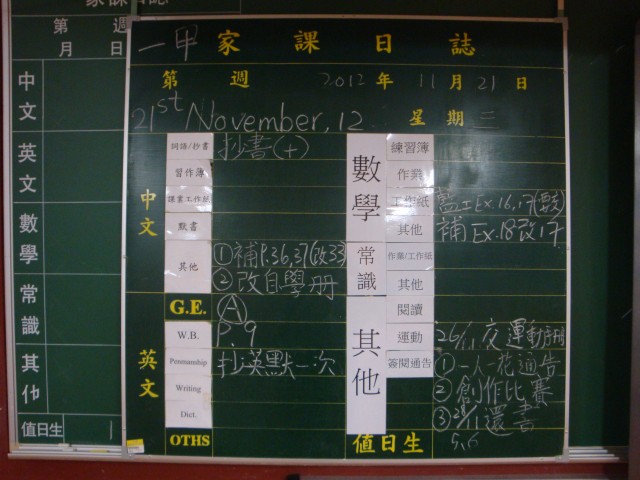 家課日誌
第 週
月 日
中文
英文
數學
常識
其他
值日生
一甲 家課日誌
第 週 2012年 11月 21日
21st November, 12 星期三
中文
詞語/抄書 抄書(十)
習作簿
默書
其他 ①補P.36,37(改33)
②改自學册
G.E. Ⓐ
英文
W.B. P.9
Penmanship 抄英默一次
Writing
Dict.
OTHS
數學
練習簿
作業
工作紙 Ex.16,17
其他 補Ex.18改17
常識
作業/工作紙
其他
其他
閱讀
運動 26/11 交運動
簽閱通告 ①一人一花通告
②創作比賽
③28/11還書
值日生 5,6